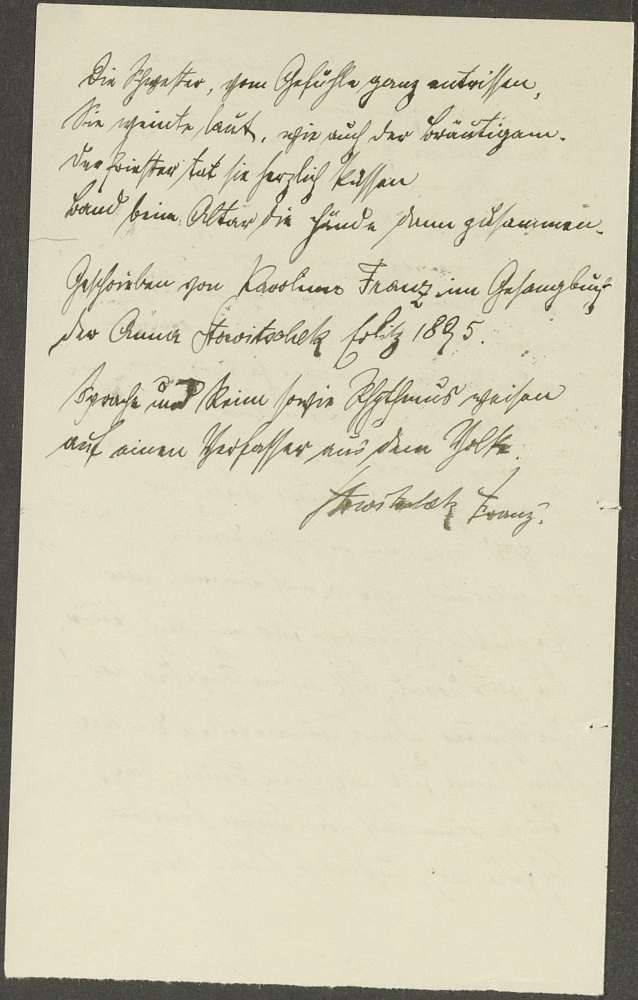 Die Schwester, vom Gefühle ganz entrissen,
Sie weinte laut, wie auch der Bräutigam.
Der Priester tat sie herzlich küssen
Band beim Altar die Hände dann zusammen.
Geschrieben von Karoline Franz im Gesangbuch
der Anna Erlitz 1895.
Sprache und Reim sowie Rhythmus weisen
auf einen Verfasser aus dem Volke.
Franz.